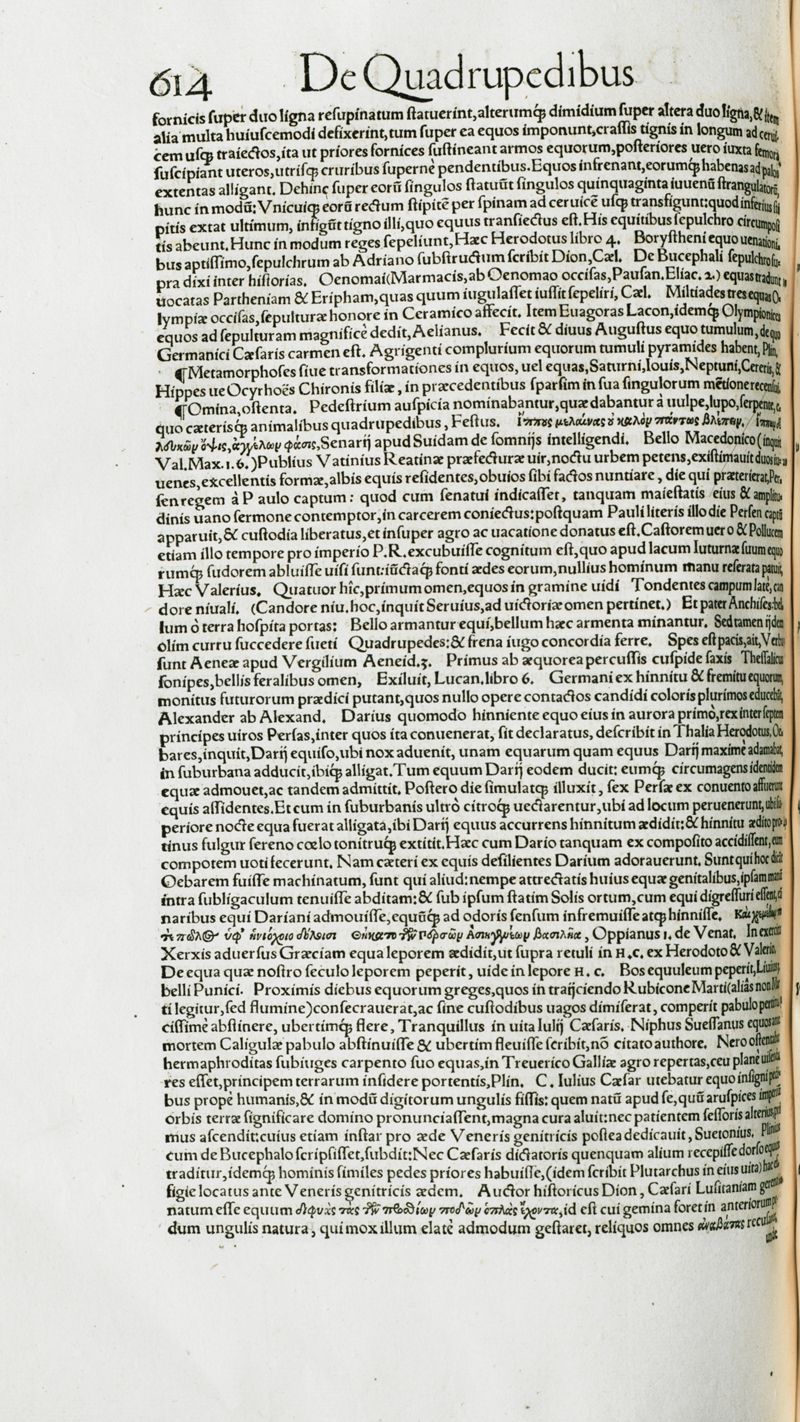 614 De Quadrupedibus
fornicis ſuper duo ligna reſupinatum ſtatuerint,alterumq́ꝫ dimidium ſuper altera duo ligna,&
alia multa huiuſcemodi defixerint,tum ſuper ea equos imponunt,craſſis tignis in longum ad
cem uſqꝫ traiectos,ita ut priores fornices ſuſtineant armos equorum,poſteriores uero iuxta femora
ſuſcipiant uteros,utriſqꝫ cruribus ſupernè pendentibus.Equos infrenant,eorumqꝫ habenas ad
extentas alligant. Dehinc ſuper eorũ ſingulos ſtatuũt ſingulos quinquaginta iuuenũ
hunc in modũ:Vnicuiqꝫ eorũ rectum ſtipitē per ſpinam ad ceruicē uſqꝫ transfigunt:quod inferius
pitis extat ultimum, infigũt tigno illi,quo equus tranſiectus eſt.His equitibus ſepulchro
tis abeunt.Hunc in modum reges ſepeliunt,Hæc Herodotus libro 4. Boryſtheni equo
bus aptiſſimo,ſepulchrum ab Adriano ſubſtructum ſcribit Dion,Cæl. De Bucephali ſepulchro
pra dixi inter hiſtorias. Oenomai(Marmacis,ab Oenomao occiſas,Pauſan.Eliac.2.) equas tradunt
uocatas Partheniam & Eripham,quas quum iugulaſſet iuſſit ſepeliri, Cæl. Miltiades tres equas O-
lympiæ occiſas,ſepulturæ honore in Ceramico affecit. Item Euagoras Lacon,idemqꝫ
equos ad ſepulturam magnificè dedit,Aelianus. Fecit & diuus Auguſtus equo tumulum, de quo
Germanici Cæſaris carmen eſt. Agrigenti complurium equorum tumuli pyramides habent, Plin.
¶Metamorphoſes ſiue transformationes in equos, uel equas,Saturni,Iouis,Neptuni,Cereris, &
Hippes ue Ocyrhoës Chironis filiæ, in præcedentibus ſparſim in ſua ſingulorum mētione
¶Omina,oſtenta. Pedeſtrium auſpicia nominabantur,quæ dabantur à uulpe,lupo,ſerpente,
quo cæterisqꝫ animalibus quadrupedibus, Feſtus. Ἵππους μελαίνας οὐ καλὸν πάντως βλέπειν.
λδυκῶν ὄψις,ἀγγέλων φάσις,Senarij apud Suidam de ſomnijs intelligendi. Bello Macedonico (inquit
Val.Max.1.6.)Publius Vatinius Reatinæ præfecturæ uir,noctu urbem petens,exiſtimauit duos
uenes,excellentis formæ,albis equis reſidentes,obuios ſibi factos nuntiare, die qui præterierat,Per-
ſen regem à P aulo captum: quod cum ſenatui indicaſſet, tanquam maieſtatis eius &
dinis uano ſermone contemptor,in carcerem coniectus:poſtquam Pauli literis illo die Perſen captũ
apparuit,& cuſtodia liberatus,et inſuper agro ac uacatione donatus eſt.Caſtorem uero & Pollucem
etiam illo tempore pro imperio P.R.excubuiſſe cognitum eſt,quo apud lacum Iuturnæ ſuum equo
rumqꝫ ſudorem abluiſſe uiſi ſunt:iũctaqꝫ fonti ædes eorum,nullius hominum manu reſerata patuit,
Hæc Valerius. Quatuor hîc,primum omen,equos in gramine uidi Tondentes campum latè, can
dore niuali. (Candore niu.hoc,inquit Seruius,ad uictoriæ omen pertinet.) Et pater Anchiſes:bel-
lum ò terra hoſpita portas: Bello armantur equi,bellum hæc armenta minantur. Sed tamen ijdem
olim curru ſuccedere ſueti Quadrupedes:& frena iugo concordia ferre. Spes eſt pacis,ait,
ſunt Aeneæ apud Vergilium Aeneid.3. Primus ab æquorea percuſſis cuſpide ſaxis Theſſalicus
ſonipes,bellis feralibus omen, Exiluit, Lucan.libro 6. Germani ex hinnitu & fremitu equorum,
monitus futurorum prædici putant,quos nullo opere contactos candidi coloris plurimos
Alexander ab Alexand. Darius quomodo hinniente equo eius in aurora primò,rex inter ſeptem
principes uiros Perſas,inter quos ita conuenerat, ſit declaratus, deſcribit in Thalia Herodotus. Oe-
bares,inquit,Darij equiſo,ubi nox aduenit, unam equarum quam equus Darij maximè adamabat,
in ſuburbana adducit,ibiqꝫ alligat.Tum equum Darij eodem ducit: eumqꝫ circumagens identidem
equæ admouet,ac tandem admittit. Poſtero die ſimulatqꝫ illuxit, ſex Perſæ ex conuento affuerunt
equis aſſidentes.Et cum in ſuburbanis ultrò citroqꝫ uectarentur,ubi ad locum peruenerunt,
periore nocte equa fuerat alligata,ibi Darij equus accurrens hinnitum ædidit:& hinnitu ædito pro-
tinus fulgur ſereno cœlo tonitruqꝫ extitit.Hæc cum Dario tanquam ex compoſito accidiſſent,eum
compotem uoti fecerunt. Nam cæteri ex equis deſilientes Darium adorauerunt. Sunt qui hoc
Oebarem fuiſſe machinatum, ſunt qui aliud:nempe attrectatis huius equæ genitalibus,ipſam manū
intra ſubligaculum tenuiſſe abditam:& ſub ipſum ſtatim Solis ortum,cum equi digreſſuri eſſent,
naribus equi Dariani admouiſſe,equũqꝫ ad odoris ſenſum infremuiſſe atqꝫ hinniſſe.
Oppianus 1. de Venat.
Xerxis aduerſus Græciam equa leporem ædidit,ut ſupra retuli in H.C. ex Herodoto & Valerio.
De equa quæ noſtro ſeculo leporem peperit, uide in lepore H. C. Bos equuleum peperit,Liuius
belli Punici. Proximis diebus equorum greges,quos in traijciendo Rubicone Marti(aliâs non
ti legitur,ſed flumine)conſecrauerat,ac ſine cuſtodibus uagos dimiſerat, comperit pabulo
ciſſimè abſtinere, ubertimqꝫ flere, Tranquillus in uita Iulij Cæſaris. Niphus Sueſſanus equos
mortem Caligulæ pabulo abſtinuiſſe & ubertim fleuiſſe ſcribit,nō citato authore. Nero oſtentabat
hermaphroditas ſubiuges carpento ſuo equas,in Treuerico Galliæ agro repertas,ceu planè
res eſſet,principem terrarum inſidere portentis,Plin. C. Iulius Cæſar utebatur equo inſigni
bus propè humanis,& in modũ digitorum ungulis fiſſis: quem natũ apud ſe,quũ aruſpices
orbis terræ ſignificare domino pronunciaſſent,magna cura aluit:nec patientem ſeſſoris alterius
mus aſcendit:cuius etiam inſtar pro æde Veneris genitricis poſtea dedicauit, Suetonius.
cum de Bucephalo ſcripſiſſet,ſubdit:Nec Cæſaris dictatoris quenquam alium recepiſſe dorſo equus
traditur,idemqꝫ hominis ſimiles pedes priores habuiſſe,(idem ſcribit Plutarchus in eius uita)
figie locatus ante Veneris genitricis ædem. Auctor hiſtoricus Dion, Cæſari Luſitaniam
natum eſſe equum διφυὰς τὰς τῶν προσθίων ποδῶν ὁπλὰς ἔχοντα,id eſt cui gemina foret in
dum ungulis natura, qui mox illum elatè admodum geſtaret, reliquos omnes ἀναβάτας